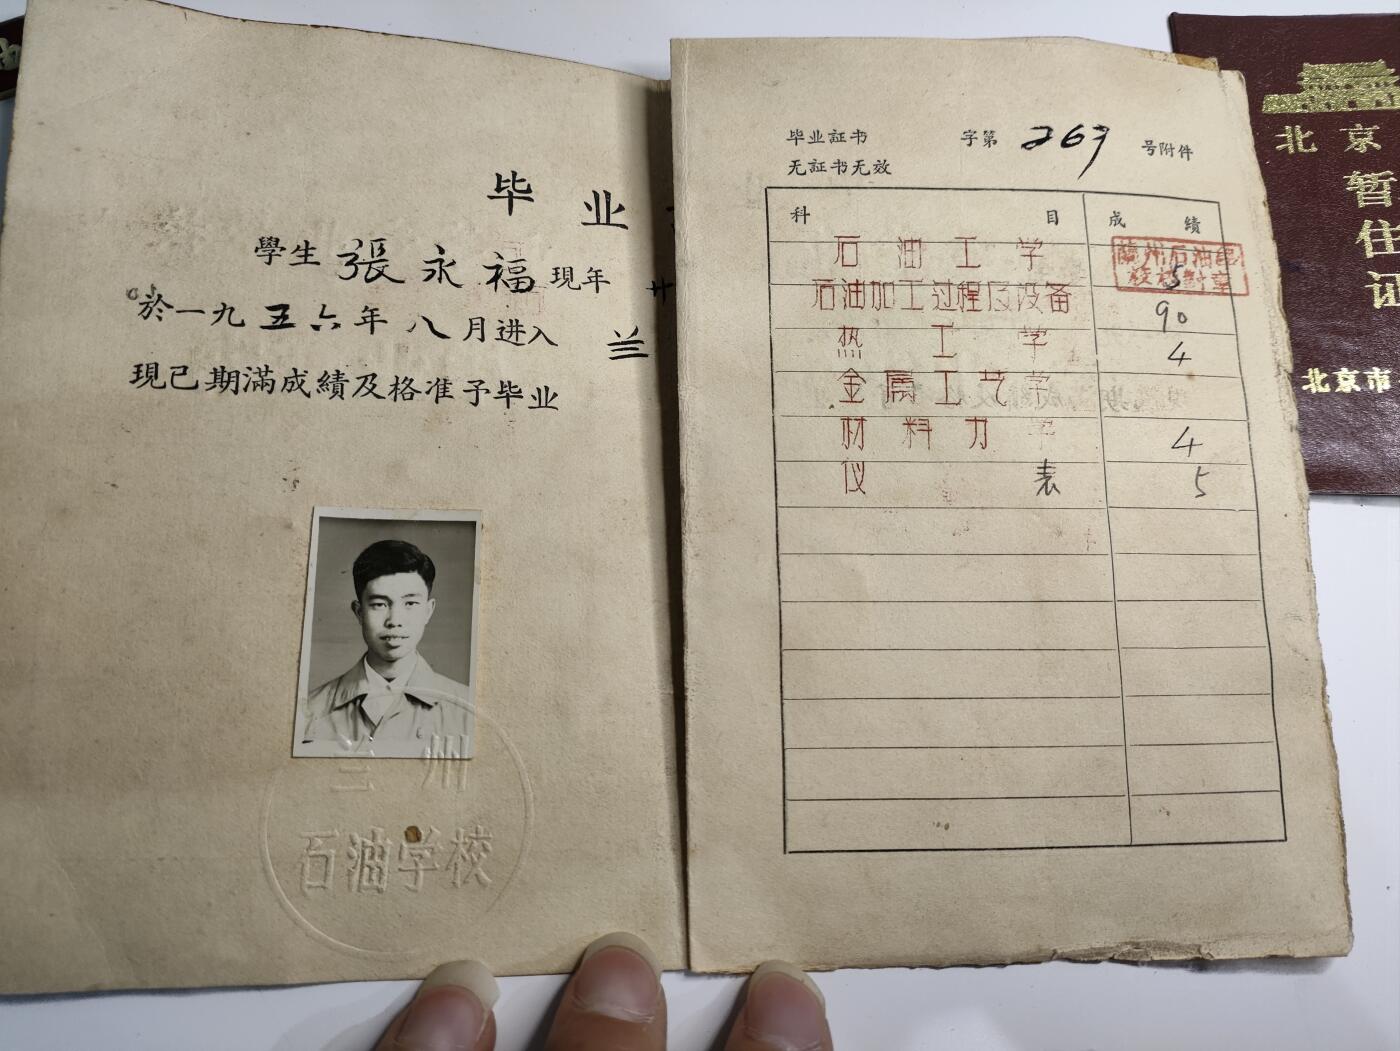 毕业
學生張永福現年廿
於一九五六年八月进入兰
現已期滿成績及格准予毕业
兰州
石油学校
毕业証书 字第 267 号附件
无証书无效
科目 成績
石油工学 5
蘭州石油學
校校對章
石油加工过程及设备 90
热工学 4
金属工艺学
材料力学 4
仪表 5
北京
暂住证
北京市